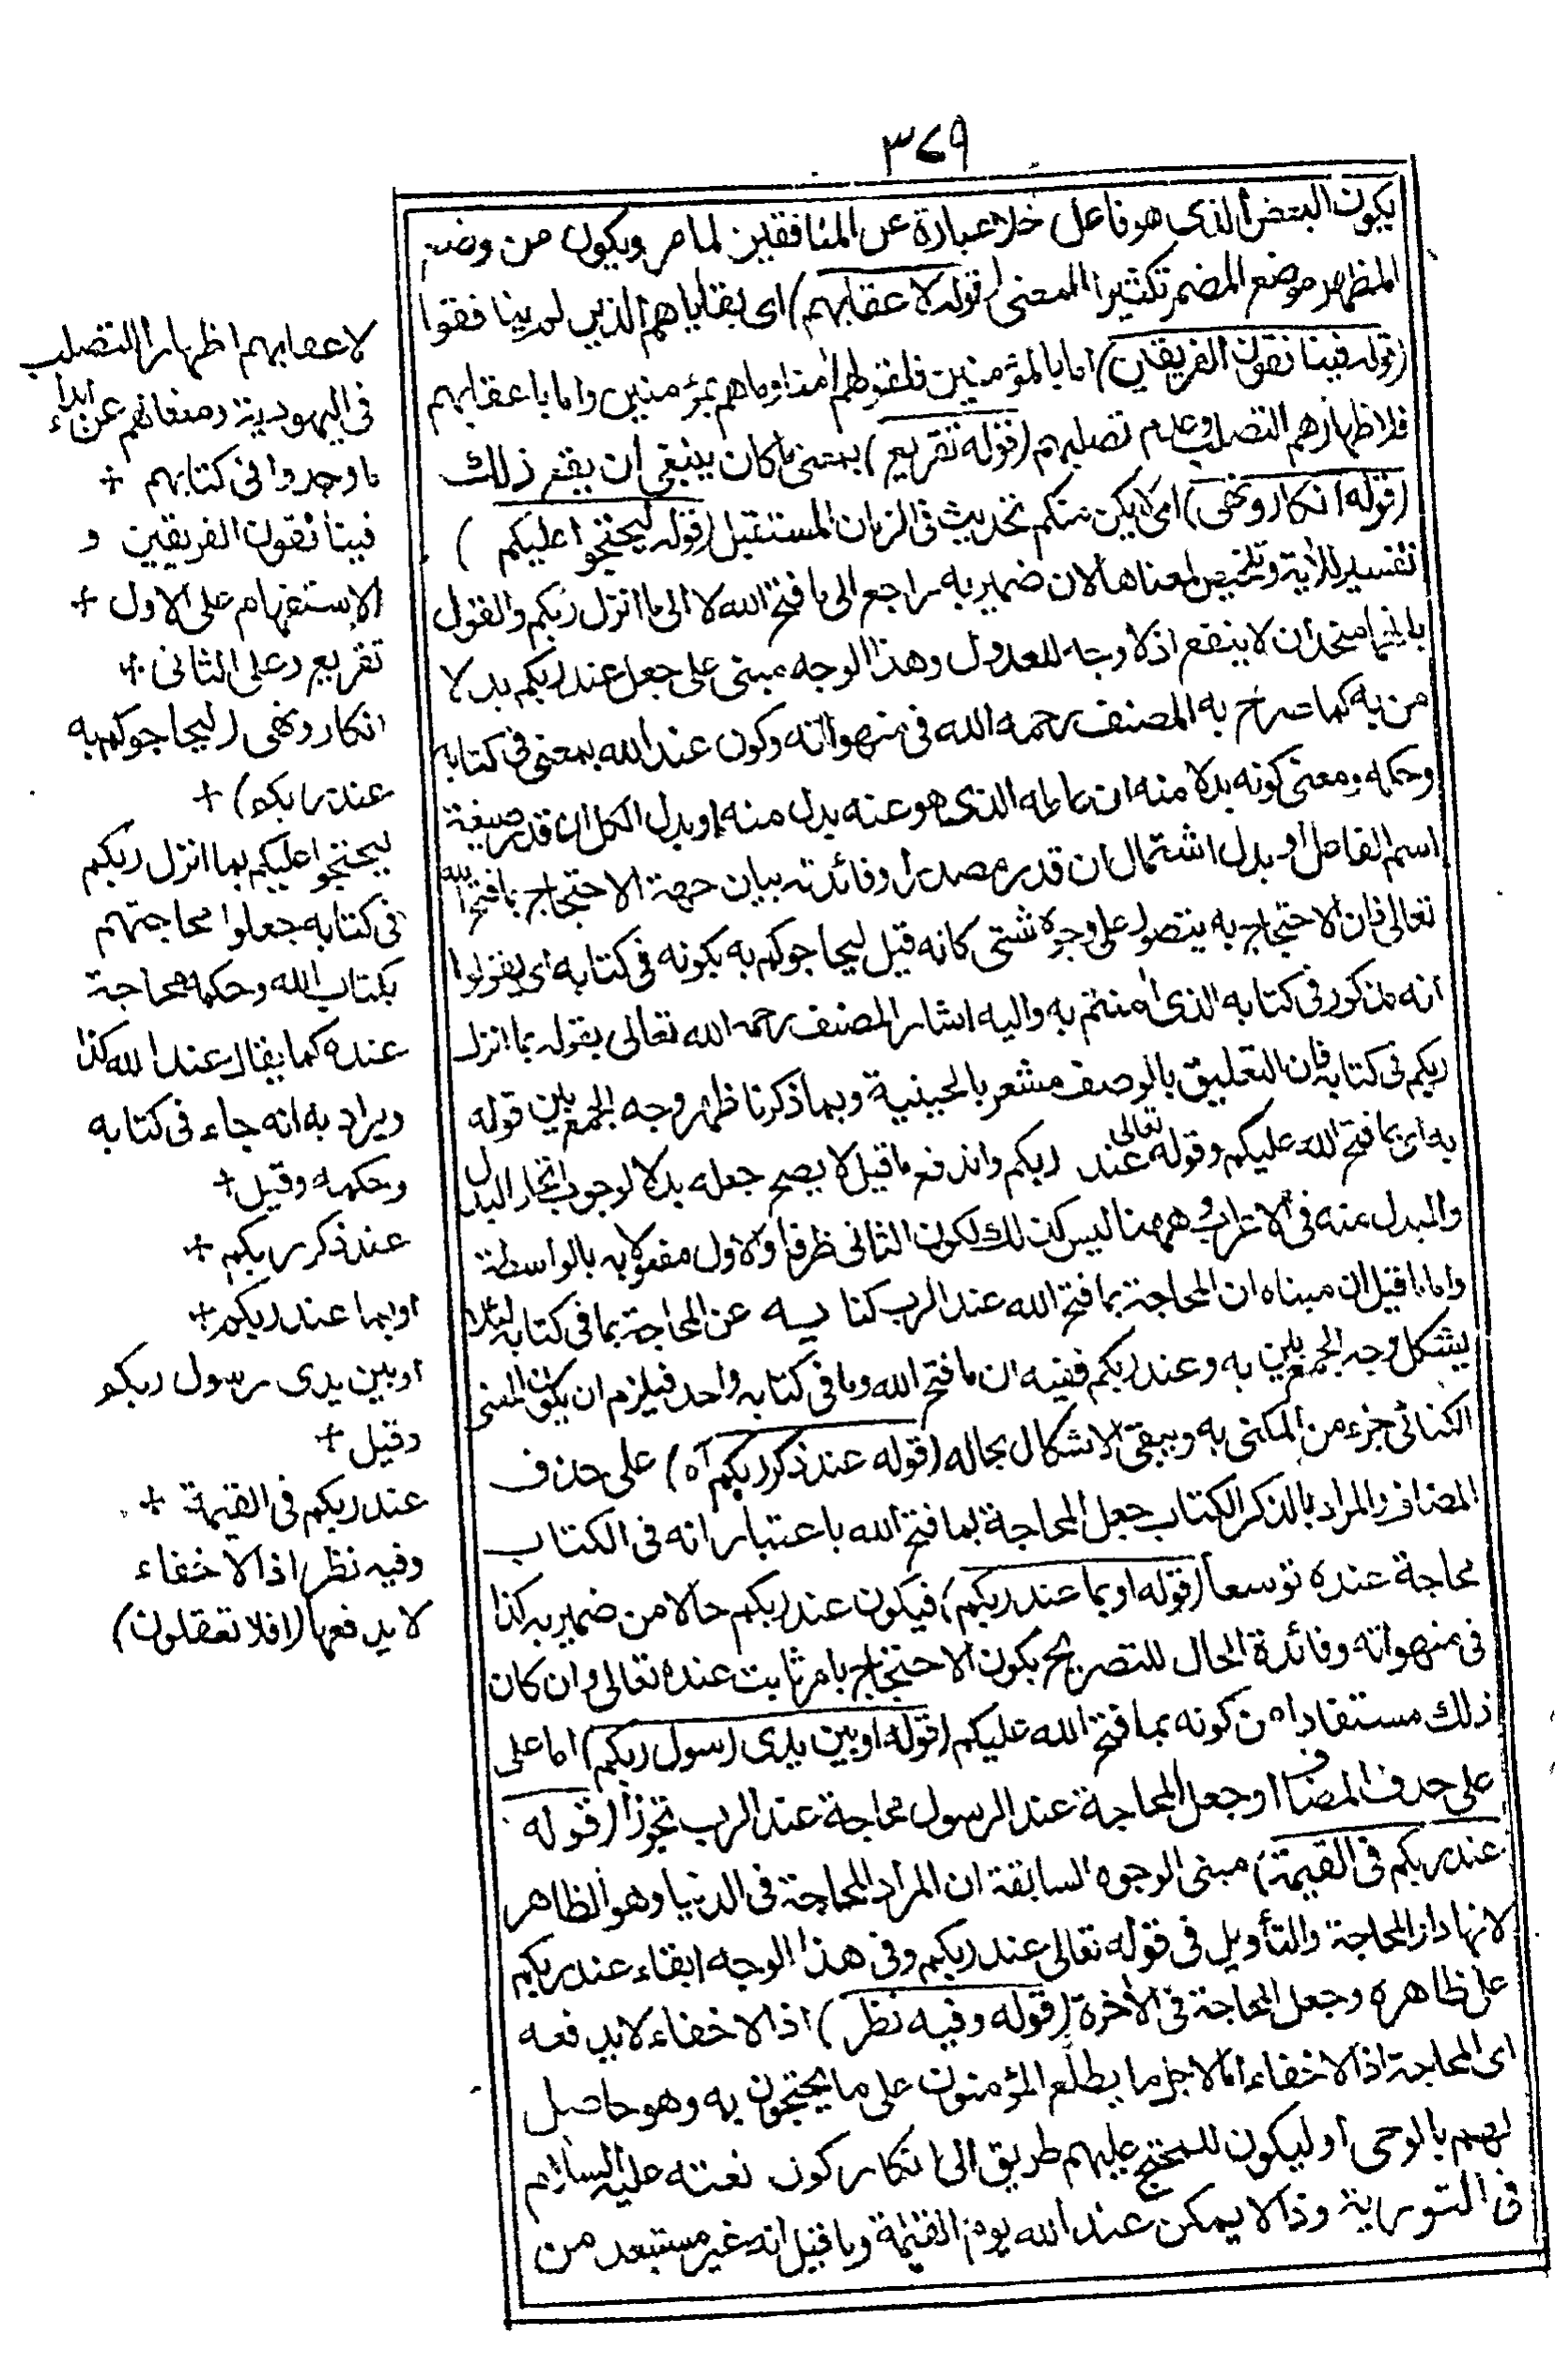 ٣٧٩
يكون البعض الذى هو فاعل خلا عبارة عن المنافقين لما مر ويكون من وضع
المظهر موضع المضمر تكثيرا للمعنى (قوله لاعقابهم) اى بقاياهم الذين لم ينافقوا
(قوله فينافقون الفريقين) اما بالمؤمنين فلقولهم امنا وما هم بمؤمنين واما باعقابهم
فلاظهارهم التصلب وعدم تصلبهم (قوله تقريع) بمعنى ما كان ينبغى ان يقع ذلك
(قوله انكار ونهى) اى لا يكن منكم تحديث فى الزمان المستقبل (قوله ليحتجوا عليكم)
تفسير للأية وتلخيص لمعناها لان ضمير به راجع الى ما فتح الله لا الى ما انزل ربكم والقول
بانهما متحدان لا ينفع اذلا وجه للعدول وهذا الوجه مبنى على جعل عند ربكم بدلا
من به كما صرح به المصنف رحمه الله فى منهواته وكون عند الله بمعنى فى كتابه
وحكمه ومعنى كونه بدلا منه ان عامله الذى هو عنه بدل منه او بدل الكل ان قدر صيغة
اسم الفاعل او بدل اشتمال ان قدر مصدرا وفائدته بيان جهة الاحتجاج بما فتح الله
تعالى فان الاحتجاج به يتصور على وجوه شتى كانه قيل ليحاجوكم به بكونه فى كتابه اى يقولوا
انه مذكور فى كتابه الذى امنتم به واليه اشار المصنف رحمه الله تعالى بقوله بما انزل
ربكم فى كتابه فان التعليق بالوصف مشعر بالحيثية وبما ذكرنا ظهر وجه الجمع بين قوله
به اى بما فتح الله عليكم وقوله تعالى عند ربكم واندفع ما قيل لا يصح جعله بدلا لوجوب اتحاد البدل
والمبدل منه فى الاعراب وههنا ليس كذلك لكون الثانى ظرفا والاول مفعولا به بالواسطة
واما ما قيل ان مبناه ان المحاجة بما فتح الله عند الرب كناية عن المحاجة بما فى كتابه لئلا
يشكل وجه الجمع بين به وعند ربكم ففيه ان ما فتح الله وما فى كتابه واحد فيلزم ان يكون المعنى
الكنائى جزء من المكنى به ويبقى الاشكال بحاله (قوله عند ذكر ربكم آه) على حذف
المضاف والمراد بالذكر الكتاب جعل المحاجة بما فتح الله باعتبار انه فى الكتاب
محاجة عنده توسعا (قوله او بما عند ربكم) فيكون عند ربكم حالا من ضمير به كذا
فى منهواته وفائدة الحال للتصريح بكون الاحتجاج بامر ثابت عنده تعالى وان كان
ذلك مستفادا من كونه بما فتح الله عليكم (قوله او بين يدى رسول ربكم) اما على
على حذف المضاف او جعل المحاجة عند الرسول محاجة عند الرب تجوزا (قوله
عند ربكم فى القيمة) مبنى الوجوه السابقة ان المراد المحاجة فى الدنيا وهو الظاهر
لانها دار المحاجة والتأويل فى قوله تعالى عند ربكم وفى هذا الوجه ابقاء عند ربكم
على ظاهره وجعل المحاجة فى الأخرة (قوله وفيه نظر) اذ الاخفاء لا يدفعه
اى المحاجة اذ الاخفاء اما لاجل ما يطلع المؤمنون على ما يحتجون به وهو حاصل
لهم بالوحى او ليكون للمحتج عليهم طريق الى انكار كون نعته عليه السلام
فى التورية وذا لا يمكن عند الله يوم القيمة وما قيل انه غير مستبعد من
لاعقابهم اظهارا للتصلب
فى اليهودية ومنعالهم عن ابداء
ما وجدوا فى كتابهم +
فينافقون الفريقين و
الاستفهام على الاول +
تقريع وعلى الثانى +
انكار ونهى (ليحاجوكم به
عند ربكم) +
ليحتجوا عليكم بما انزل ربكم
فى كتابه جعلوا محاجتهم
بكتاب الله وحكمه محاجة
عنده كما يقال عند الله كذا
ويراد به انه جاء فى كتابه
وحكمه وقيل +
عند ذكر ربكم +
او بما عند ربكم +
او بين يدى رسول ربكم
وقيل +
عند ربكم فى القيمة +
وفيه نظر اذ الاخفاء
لا يدفعها (افلا تعقلون)